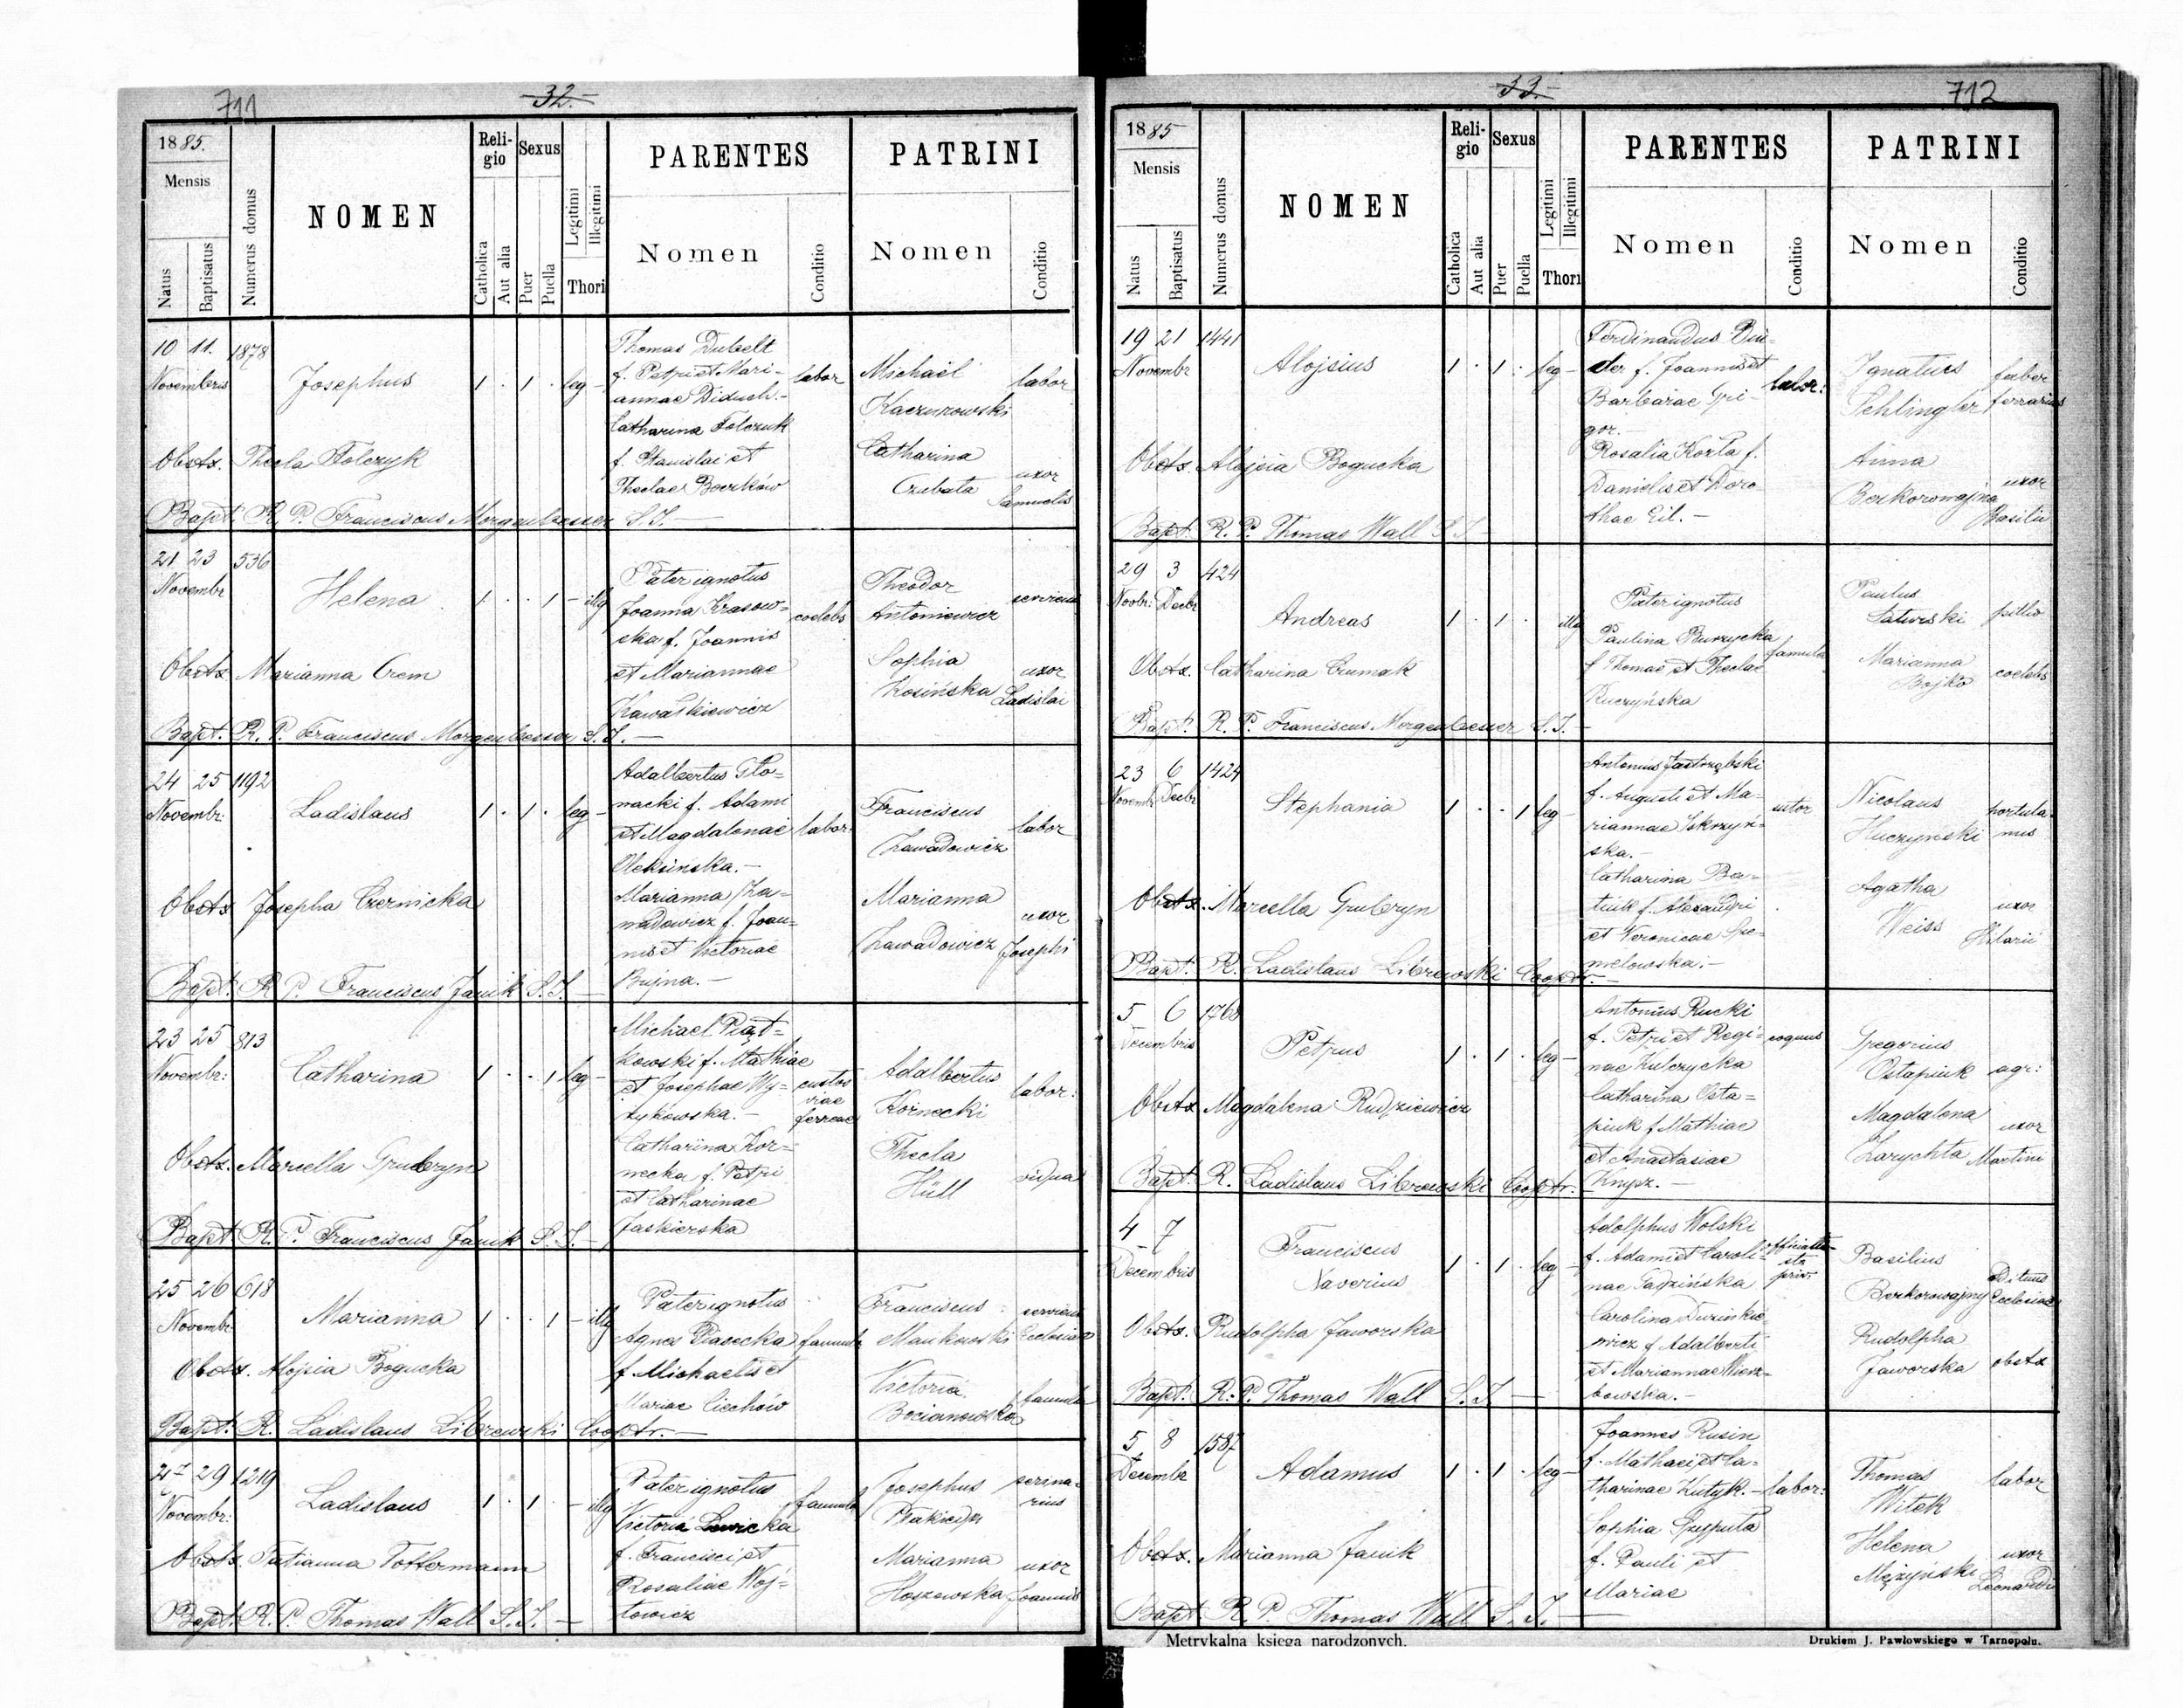 711
32.
1885.
Mensis
Natus
Baptisatus
Numerus domus
NOMEN
Religio
Catholica
Aut alia
Sexus
Puer
Puella
Legitimi
Illegitimi
Thori
PARENTES
Nomen
Conditio
PATRINI
Nomen
Conditio
10 11. 1878
Novembris
Josephus
1 . 1 . leg -
Thomas Dubelt
f. Petri et Mari-
annae Diduch.-
Catharina Tolczuk
f. Stanislai et
Theclae Boczków
labor
Michaël
Kaczurowski
labor
Catharina
Czubata
uxor
Samuelis
Obstx. Thecla Tolczyk
Bapt. R. P. Franciscus Morgenbesser S. J. -
21 23 536
Novembr
Helena
1 . . 1 - illg
Pater ignotus
Joanna Krasow-
ska f. Joannis
et Mariannae
Kawałkiewicz
coelebs
Theodor
Antoniewicz
serviens
Sophia
Kosińska
uxor
Ladislai
Obstx. Marianna Crem
Bapt. R. P. Franciscus Morgenbesser S. J. -
24 25 1192
Novembr:
Ladislaus
1 . 1 . leg -
Adalbertus Gło-
nacki f. Adami
et Magdalenae
Oleksinska. -
Marianna Za-
wadowicz f. Joan-
nis et Victoriae
Bujna. -
labor.
Franciscus
Zawadowicz
labor
Marianna
Zawadowicz
uxor
Josephi
Obstx Josepha Czernicka
Bapt. R. P. Franciscus Janik S. J. -
23 25 813
Novembr:
Catharina
1 . . 1 leg -
Michael Piąt-
kowski f. Mathiae
et Josephae Wy-
żykowska. -
Catharina Kor-
necka f. Petri
et Catharinae
Jaskierska
custos
viae
ferreae
Adalbertus
Kornecki
labor:
Thecla
Hüll
vidua
Obstx. Marcella Gruberyn
Bapt. R. P. Franciscus Janik S. J. -
25 26 618
Novembr
Marianna
1 . . 1 - illg
Pater ignotus
Agnes Piasecka
f. Michaelis et
Mariae Ciechów
famula
Franciscus
Mankowski
serviens
Ecclesiae
Victoria
Bocianowska
famula
Obstx. Alojsia Bogucka
Bapt. R. Ladislaus Librewski Cooptr. -
27 29 1219
Novembr:
Ladislaus
1 . 1 . - illg
Pater ignotus
Victoria Lewicka
f. Francisci et
Rosaliae Woj-
towicz
famula
Josephus
scrina-
rius
Marianna
Hoszowska
uxor
Joannis
Obstx. Tatianna Tottermann
Bapt. R. P. Thomas Wall S. J. -
33.
712
1885
Mensis
Natus
Baptisatus
Numerus domus
NOMEN
Religio
Catholica
Aut alia
Sexus
Puer
Puella
Legitimi
Illegitimi
Thori
PARENTES
Nomen
Conditio
PATRINI
Nomen
Conditio
19 21 1441
Novembr
Alojsius
1 . 1 . leg -
Ferdinandus Bin-
der f. Joannis et
Barbarae Gri-
gor. -
Rosalia Kozła f.
Danielis et Doro-
thae Eil. -
labor:
Ignatius
Schlingler
faber
ferrarius
Anna
Berkorowajna
uxor
Basilii
Obstx. Alojsia Bogucka
Bapt. R. P. Thomas Wall S. J. -
29 3 424
Novbr: Decbr
Andreas
1 . 1 . illg
Pater ignotus
Paulina Burzycka
f Thomae et Theclae
Ruczyńska
famula
Paulus
pillio
Marianna
Bojko
coelebs
Obstx. Catharina Czumak
Bapt. R. P. Franciscus Morgenbesser S. J. -
23 6 1424
Novembr Decbr
Stephania
1 . . 1 leg -
Antonius Jastrzębski
f. Augusti et Ma-
riannae Iskrzyń-
ska. -
Catharina Ba-
tiuk f. Alexandri
et Veronicae Spe-
melowska. -
sutor
Nicolaus
Huczynski
hortula-
nus
Agatha
Weiss
uxor
Hilarii
Obstx. Marcella Gruberyn
Bapt. R. Ladislaus Librewski Cooptr. -
5 6 1768
Decembris
Petrus
1 . 1 . leg -
Antonius Rucki
f. Petri et Regi-
nae Kulczycka
Catharina Osta-
piuk f Mathiae
et Anastasiae
Knysz. -
coquus
Gregorius
Ostapiuk
agr:
Magdalena
Zarychta
uxor
Martini
Obstx Magdalena Rudziewicz
Bapt. R. Ladislaus Librewski Cooptr. -
4 7
Decembris
Franciscus
Xaverius
1 . 1 . leg -
Adolphus Wolski
f. Adami et Caroli-
nae Gadzińska
Carolina Duzinkie-
wicz f Adalberti
et Mariannae Wierz-
bowska. -
priv:
Basilius
Berkorowajny
Ditunus
Ecclesiae
Rudolpha
Jaworska
obstx
Obstx. Rudolpha Jaworska
Bapt. R. P. Thomas Wall S. J. -
5 8 1587
Decembr
Adamus
1 . 1 . leg -
Joannes Rusin
f. Mathaei et Ca-
tharinae Kutyk. -
Sophia Szyputa
f. Pauli et
Mariae
labor:
Thomas
Witek
labor
Helena
Mężyński
uxor
Leonardi
Obstx. Marianna Janik
Bapt. R. P. Thomas Wall S. J. -
Metrykalna księga narodzonych.
Drukiem J. Pawłowskiego w Tarnopolu.